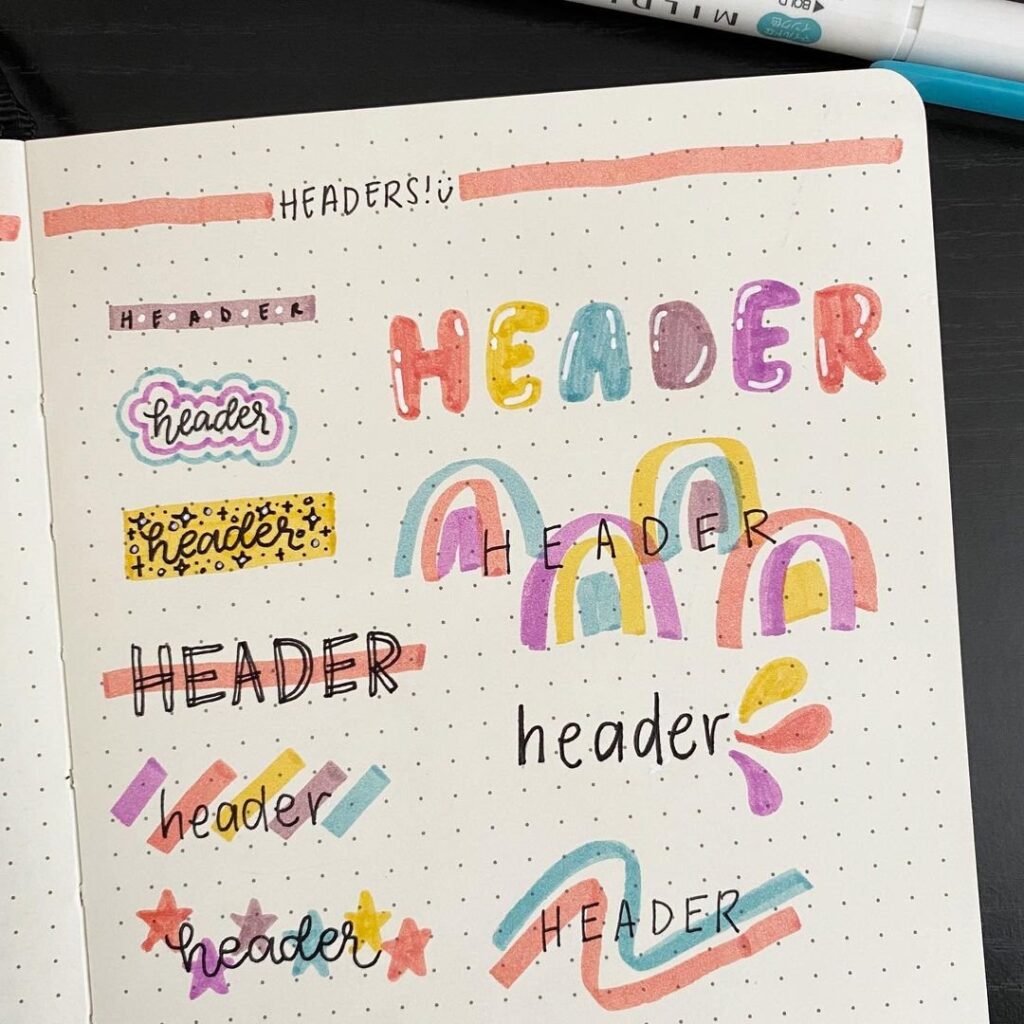 MILD
BOLD
HEADERS!
HEADER
header
header
HEADER
header
header
HEADER
HEADER
header
HEADER